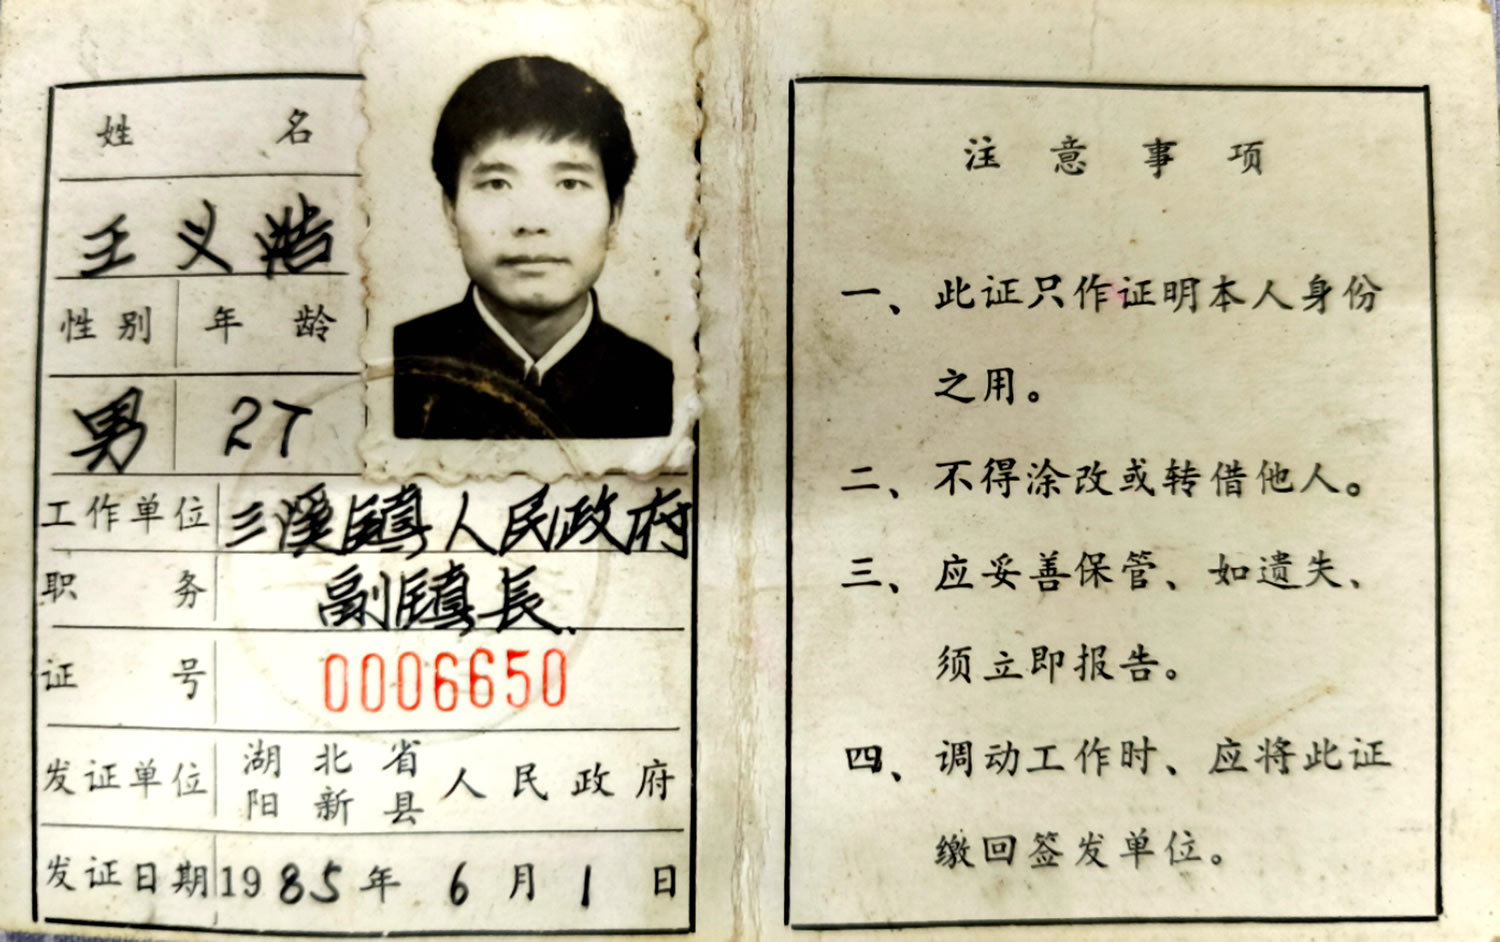 姓 名
王义浩
性别 年龄
男 27
工作单位 三溪镇人民政府
职务 副镇長
证号 0006650
发证单位 湖北省阳新县人民政府
发证日期 1985年6月1日
注意事项
一、此证只作证明本人身份
之用。
二、不得涂改或转借他人。
三、应妥善保管、如遗失、
须立即报告。
四、调动工作时、应将此证
缴回签发单位。